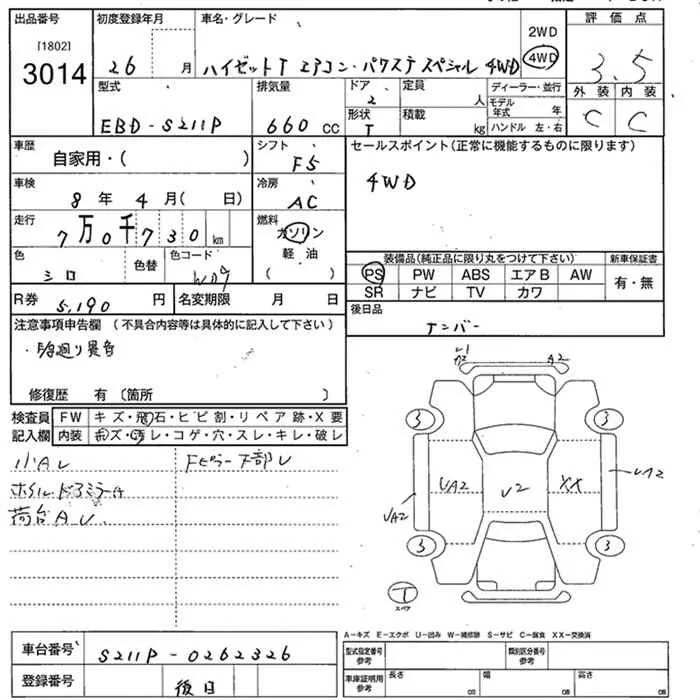 出品番号 初度登録年月 車名・グレード 2WD 評価点
[1802] 3014 26 月 ハイゼットT エアコン・パワステスペシャル 4WD 4WD 3.5
型式 排気量 ドア 定員 ディーラー・並行 外装 内装
2 人 モデル年式 年
EBD-S211P 660 cc 形状 T 積載 kg ハンドル 左・右 C C
車歴 シフト セールスポイント(正常に機能するものに限ります)
自家用・( ) F5
車検 冷房 4WD
8 年 4 月( 日) AC
走行 燃料
7万0千730 km ガソリン
色 色替 色コード 軽油 装備品(純正品に限り丸をつけて下さい) 新車保証書
シロ W09 ( ) PS PW ABS エアB AW 有・無
R券 5,190 円 名変期限 月 日 SR ナビ TV カワ
注意事項申告欄 (不具合内容等は具体的に記入して下さい) 後日品
廻り異音 ナンバー
修復歴 有〔箇所 〕
検査員 FW キズ・飛石・ヒビ割・リペア跡・X要
記入欄 内装 キズ・汚レ・コゲ・穴・スレ・キレ・破レ
小AU Fピラー下部U
荷台AU
U1 A2 A2
3 3
UA2 U2 XX UA2
UA2
3 3
T
スペア
A-キズ E-エクボ U-凹み W-補修跡 S-サビ C-腐食 XX-交換済
車台番号 S211P-0262326 型式指定番号 参考 類別区分番号 参考
登録番号 後日 車庫証明用 参考 長さ cm 幅 cm 高さ cm